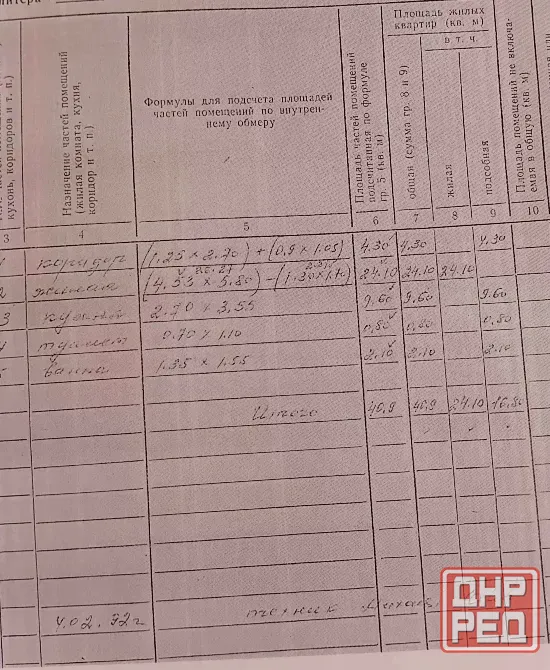 кухонь, коридоров и т. п.)
Назначение частей помещений
(жилая комната, кухня,
коридор и т. п.)
Формулы для подсчета площадей
частей помещений по внутрен-
нему обмеру
Площадь частей помещений
подсчитанная по формуле
гр. 5 (кв. м)
Площадь жилых
квартир (кв. м)
в т. ч.
общая (сумма гр. 8 и 9)
жилая
подсобная
Площадь помещений не включа-
емая в общую (кв. м)
3 4 5 6 7 8 9 10
1 коридор (1.25 × 2.70) + (0.9 × 1.05) 4.30 4.30 4.30
2 жилая (4.55 × 5.80) - (1.30 × 1.70) 24.10 24.10 24.10
3 кухня 2.70 × 3.55 9.60 9.60 9.60
4 туалет 0.70 × 1.10 0,80 0,80 0,80
5 ванна 1.35 × 1.55 2.10 2.10 2.10
Итого 40,9 40,9 24.10 16.80
4.02.92г техник
ДНР
РЕД